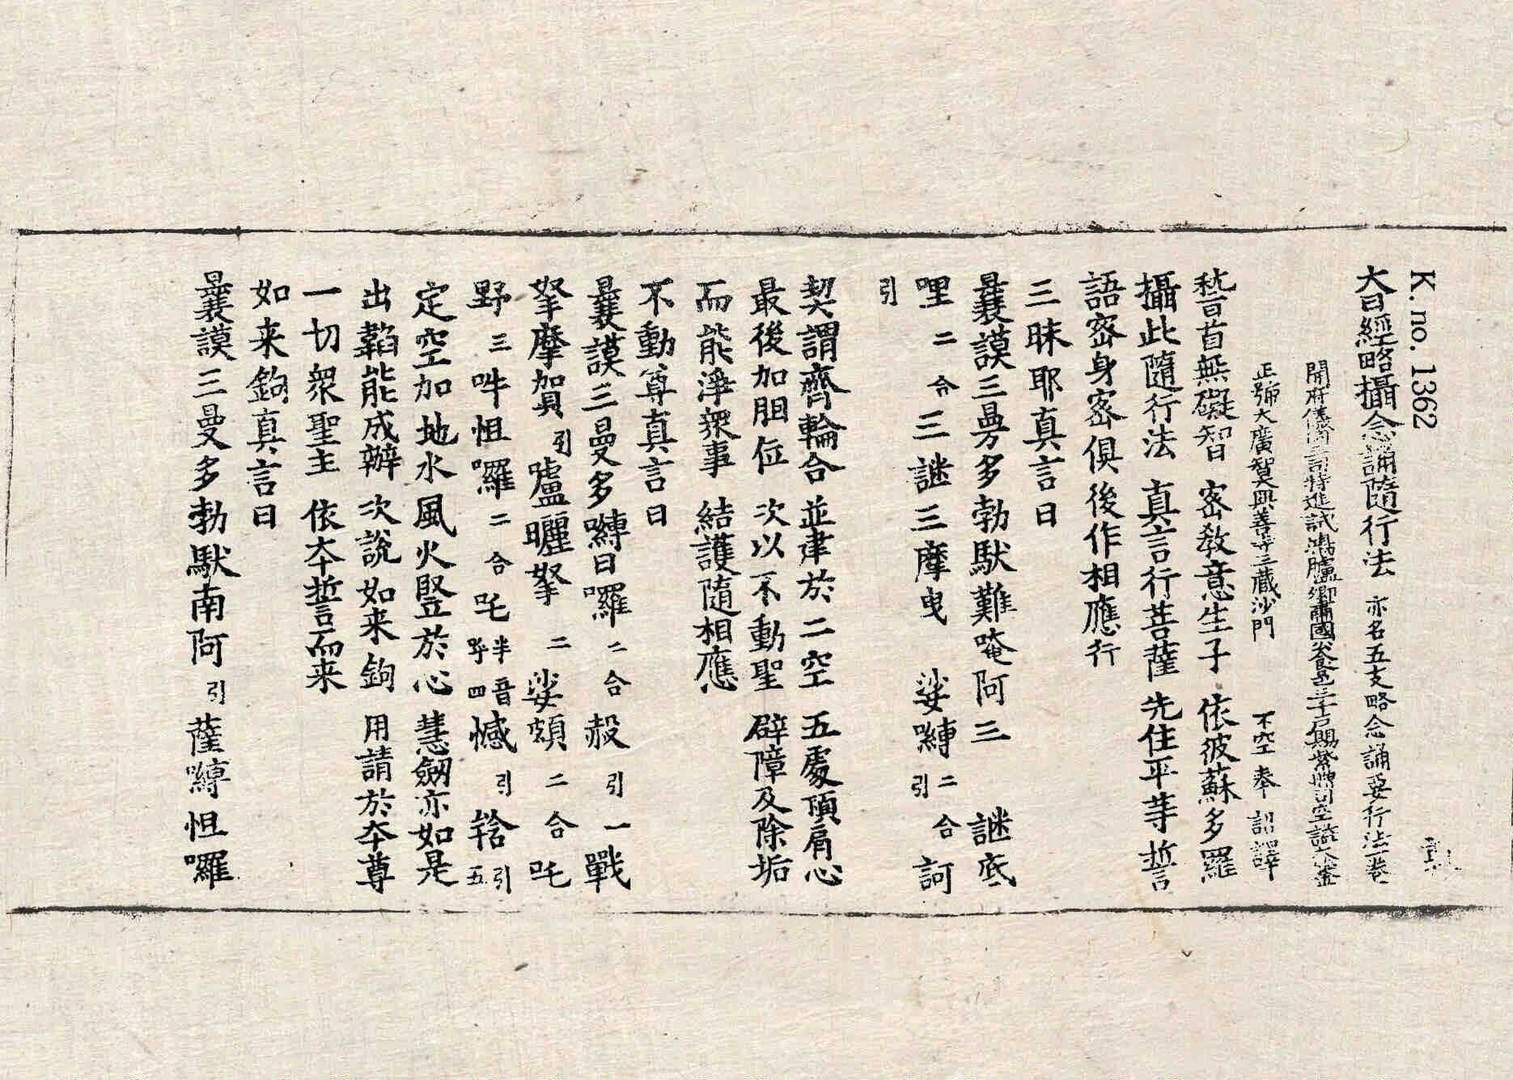 K. no. 1362
大日經略攝念誦隨行法 亦名五支略念誦要行法一卷
開府儀同三司特進試鴻臚卿肅國公食邑三千户賜紫贈司空謚大鑒
正號大廣智大興善寺三藏沙門 不空奉 詔譯
稽首無礙智 密教意生子 依彼蘇多羅
攝此隨行法 真言行菩薩 先住平等誓
語密身密俱 後作相應行
三昧耶真言曰
曩謨三曼多勃馱難唵阿三 謎底
哩二合三謎三摩曳 娑嚩二合引訶
引
契謂齊輪合 並建於二空 五處頂肩心
最後加胆位 次以不動聖 辟障及除垢
而能淨衆事 結護隨相應
不動尊真言曰
曩謨三曼多嚩日囉二合赧引一戰
拏摩賀引嚧曬拏二娑頗二合吒
野三吽怛囉二合吒半音呼四憾引䶎引五
定空加地水 風火竪於心 慧劒亦如是
出鞘能成辦 次說如来鉤 用請於夲尊
一切衆聖主 依夲誓而来
如来鉤真言曰
曩謨三曼多勃馱南阿引薩嚩怛囉